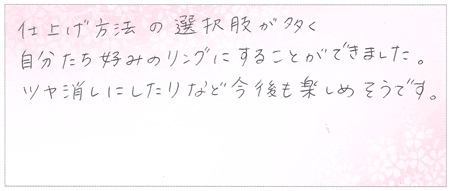 仕上げ方法の選択肢が多く
自分たち好みのリングにすることができました。
ツヤ消しにしたりなど今後も楽しめそうです。